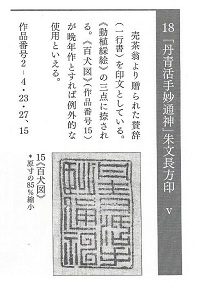 18「丹青活手妙通神」朱文長方印 v
売茶翁より贈られた賛辞
(一行書)を印文としている。
《動植綵絵》の三点に捺され
る。《百犬図》(作品番号15)
が晩年作とすれば例外的な
使用といえる。
作品番号2~4・23・27、15
15《百犬図》
*原寸の85%縮小
丹青活手
妙通神